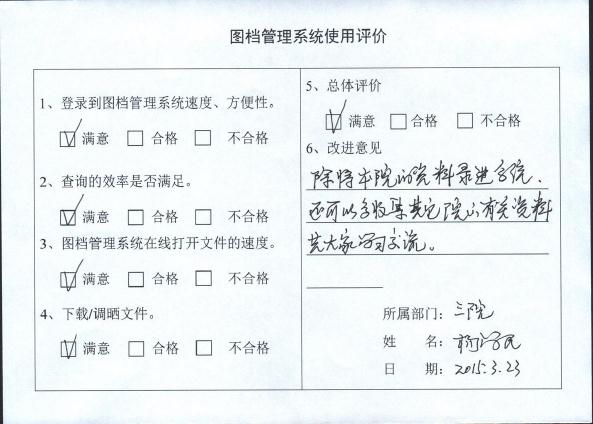 图档管理系统使用评价
1、登录到图档管理系统速度、方便性。
☑ 满意 □ 合格 □ 不合格
2、查询的效率是否满足。
☑ 满意 □ 合格 □ 不合格
3、图档管理系统在线打开文件的速度。
☑ 满意 □ 合格 □ 不合格
4、下载/调晒文件。
☑ 满意 □ 合格 □ 不合格
5、总体评价
☑ 满意 □ 合格 □ 不合格
6、改进意见
除将本院的资料录进系统.
还可以多收集其它院的有关资料
共大家学习交流。
所属部门：三院
姓 名：
日 期：2015.3.23